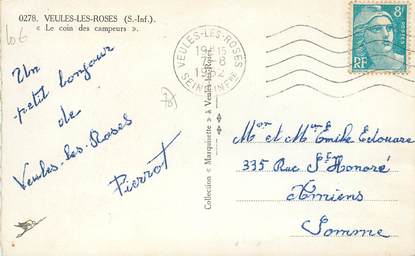 0278. VEULES-LES-ROSES (S.-Inf.).
« Le coin des campeurs ».
Un
petit bonjour
de
Veules-les-Roses
Pierrot
Collection « Marquisette » à Veules-les-Roses
VEULES-LES-ROSES
SEINE INFRE
8F
RF
Mor et Mme Emile Edouare
335 Rue St Honoré
Amiens
Somme